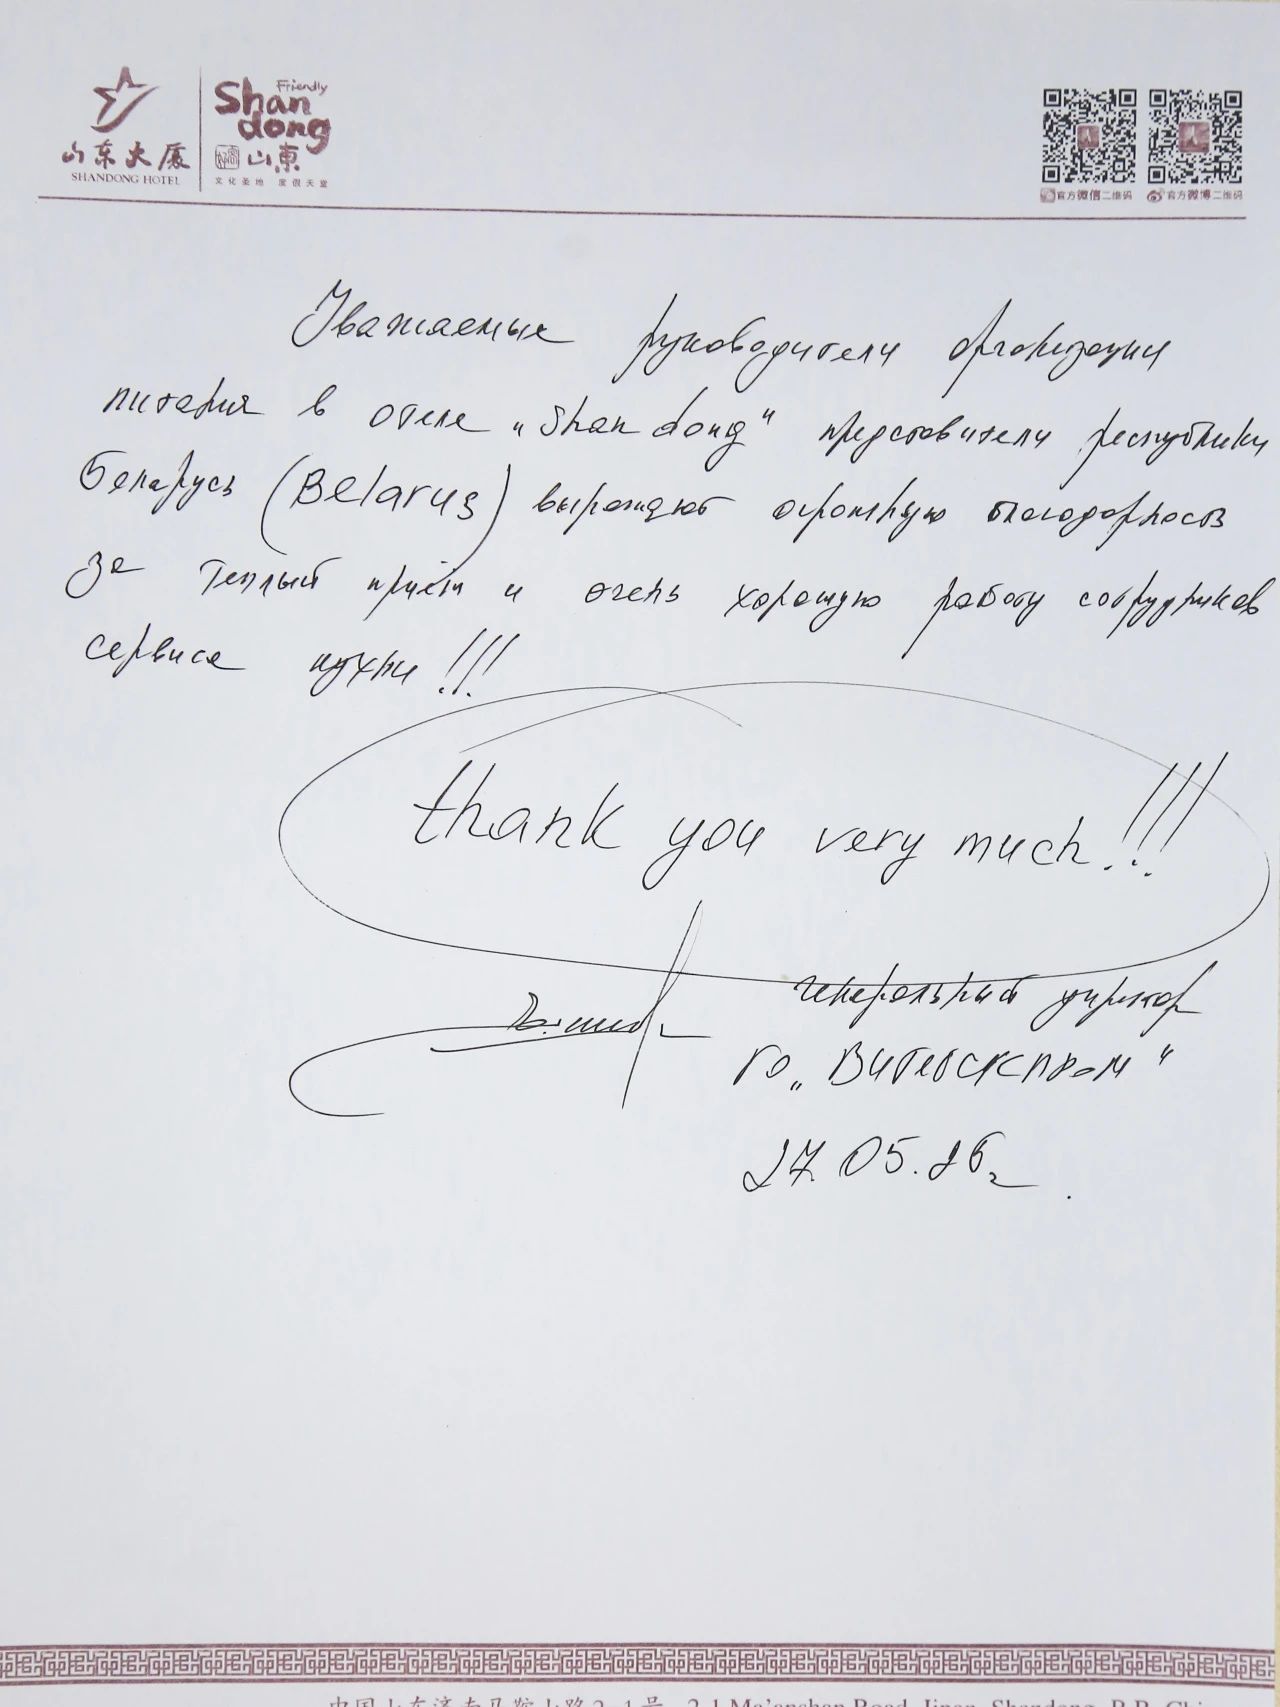 Friendly
Shan
dong
山东大厦
SHANDONG HOTEL
好客
山東
文化圣地 度假天堂
官方微信二维码
官方微博二维码
Уважаемые руководители организации
питания в отеле „Shan dong" представители республики
Беларусь (Belarus) выражают огромную благодарность
за теплый приём и очень хорошую работу сотрудников
сервиса кухни !!!
thank you very much!!!
генеральный директор
ГО „Витебскпром"
27.05.26г.
中国山东济南马鞍山路2-1号 2-1 Ma'anshan Road, Jinan, Shandong, P.R. Chi